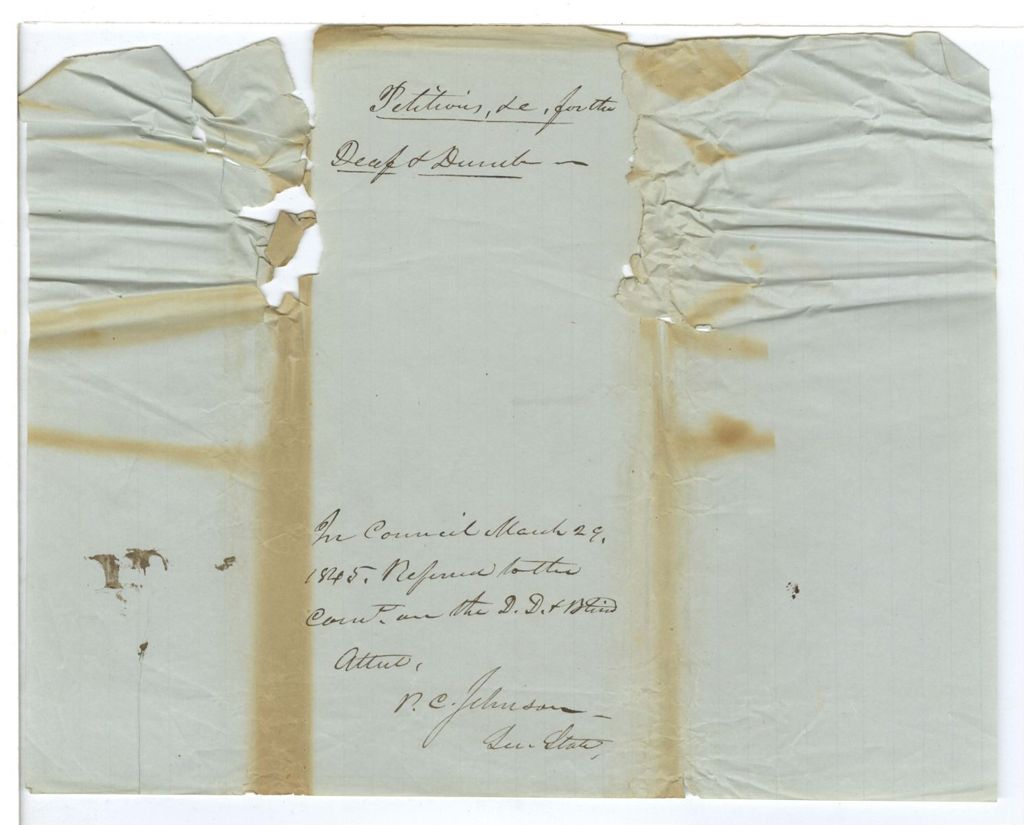 Petitions, &c, for the
Deaf & Dumb —
In Council March 29,
1845. Referred to the
Comte. on the D. D. & Blind
Attest,
P. C. Johnson —
Sec. State,